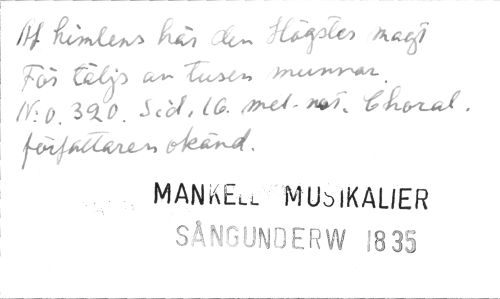 Af himlens här den Högstes magt
För täljs av tusen munnar.
N:o. 320. Sid. 16. mel. not. Choral.
författaren okänd.
MANKELL MUSIKALIER
SÅNGUNDERW 1835